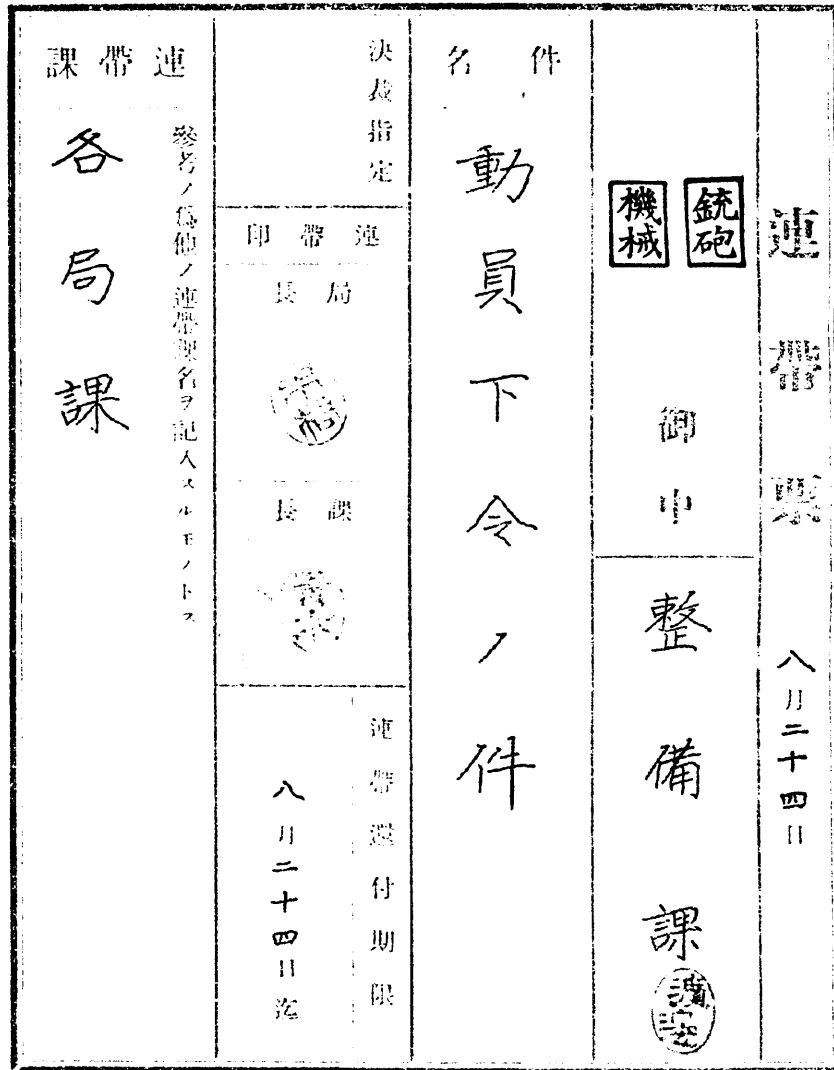 連帯票 八月二十四日
銃砲
機械
御中
整備課
件名
動員下令ノ件
決裁指定
連帯印
局長
課長
連帯還付期限
八月二十四日迄
連帯課
參考ノ爲他ノ連帯課名ヲ記入スルモノトス
各局課